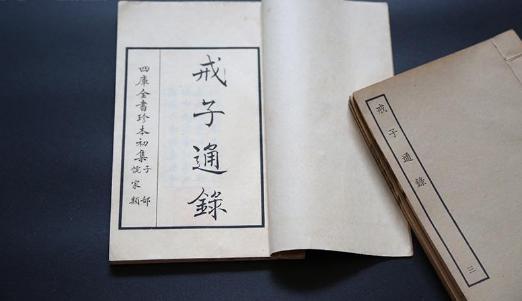 戒子通錄
四庫全書珍本初集
子部
儒家類
戒子通錄
三